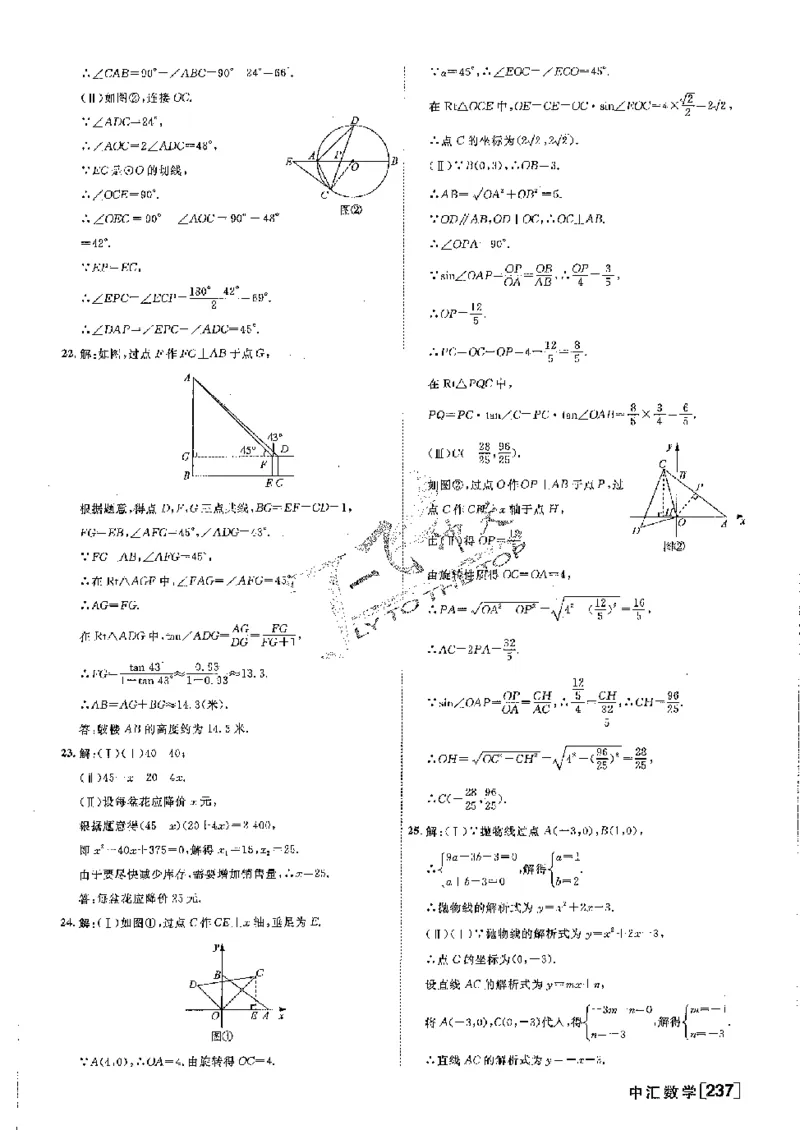 ∴∠CAB=90°-∠ABC=90°-24°=66°.
(Ⅱ)如图②,连接OC.
∵∠ADC=24°,
∴∠AOC=2∠ADC=48°,
∵EC是⊙O的切线,
∴∠OCE=90°.
∴∠OEC=90°-∠AOC=90°-48°
=42°.
∵EP=EC,
∴∠EPC=∠ECP=(180°-42°)/2=69°.
∴∠DAP=∠EPC-∠ADC=45°.
D
E A P O B
C
图②
22.解:如图,过点F作FG⊥AB于点G,
A
43°
45° D
G F
B E C
根据题意,得点D,F,G三点共线,BG=EF=CD=1,
FG=EB,∠AFG=45°,∠ADG=43°.
∵FG⊥AB,∠AFG=45°,
∴在Rt△AGF中,∠FAG=∠AFG=45°
∴AG=FG.
在Rt△ADG中,tan∠ADG=AG/DG=FG/(FG+1),
∴FG=tan 43°/(1-tan 43°)≈0.93/(1-0.93)≈13.3.
∴AB=AG+BG≈14.3(米).
答:敬楼AB的高度约为14.3米.
23.解:(Ⅰ)(ⅰ)40 40;
(ⅱ)45-x 20 4x.
(Ⅱ)设每盆花应降价x元,
根据题意得(45-x)(20+4x)=2 400,
即x²-40x+375=0,解得x₁=15,x₂=25.
由于要尽快减少库存,需要增加销售量,∴x=25.
答:每盆花应降价25元.
24.解:(Ⅰ)如图①,过点C作CE⊥x轴,垂足为E.
y
B C
D
O E A x
图①
∵A(4,0),∴OA=4.由旋转得OC=4.
∵α=45°,∴∠EOC=∠ECO=45°.
在Rt△OCE中,OE=CE=OC·sin∠EOC=4×√2/2=2√2,
∴点C的坐标为(2√2,2√2).
(Ⅱ)∵B(0,3),∴OB=3.
∴AB=√(OA²+OB²)=5.
∵OD∥AB,OD⊥OC,∴OC⊥AB.
∴∠OPA=90°.
∵sin∠OAP=OP/OA=OB/AB,∴OP/4=3/5,
∴OP=12/5.
∴PC=OC-OP=4-12/5=8/5.
在Rt△PQC中,
PQ=PC·tan∠C=PC·tan∠OAB=8/5×3/4=6/5.
(Ⅲ)C(-28/25,96/25).
如图②,过点O作OP⊥AB于点P,过
点C作CH⊥x轴于点H,
由(Ⅱ)得OP=12/5
由旋转性质得OC=OA=4,
y
C
B
P
D H O A x
图②
∴PA=√(OA²-OP²)=√(4²-(12/5)²)=16/5,
∴AC=2PA=32/5.
∵sin∠OAP=OP/OA=CH/AC,∴(12/5)/4=CH/(32/5),∴CH=96/25.
∴OH=√(OC²-CH²)=√(4²-(96/25)²)=28/25,
∴C(-28/25,96/25).
25.解:(Ⅰ)∵抛物线过点A(-3,0),B(1,0),
∴{9a-3b-3=0 a+b-3=0,解得{a=1 b=2.
∴抛物线的解析式为y=x²+2x-3.
(Ⅱ)(ⅰ)∵抛物线的解析式为y=x²+2x-3,
∴点C的坐标为(0,-3).
设直线AC的解析式为y=mx+n,
将A(-3,0),C(0,-3)代入,得{-3m+n=0 n=-3,解得{m=-1 n=-3.
∴直线AC的解析式为y=-x-3.
中汇数学[237]